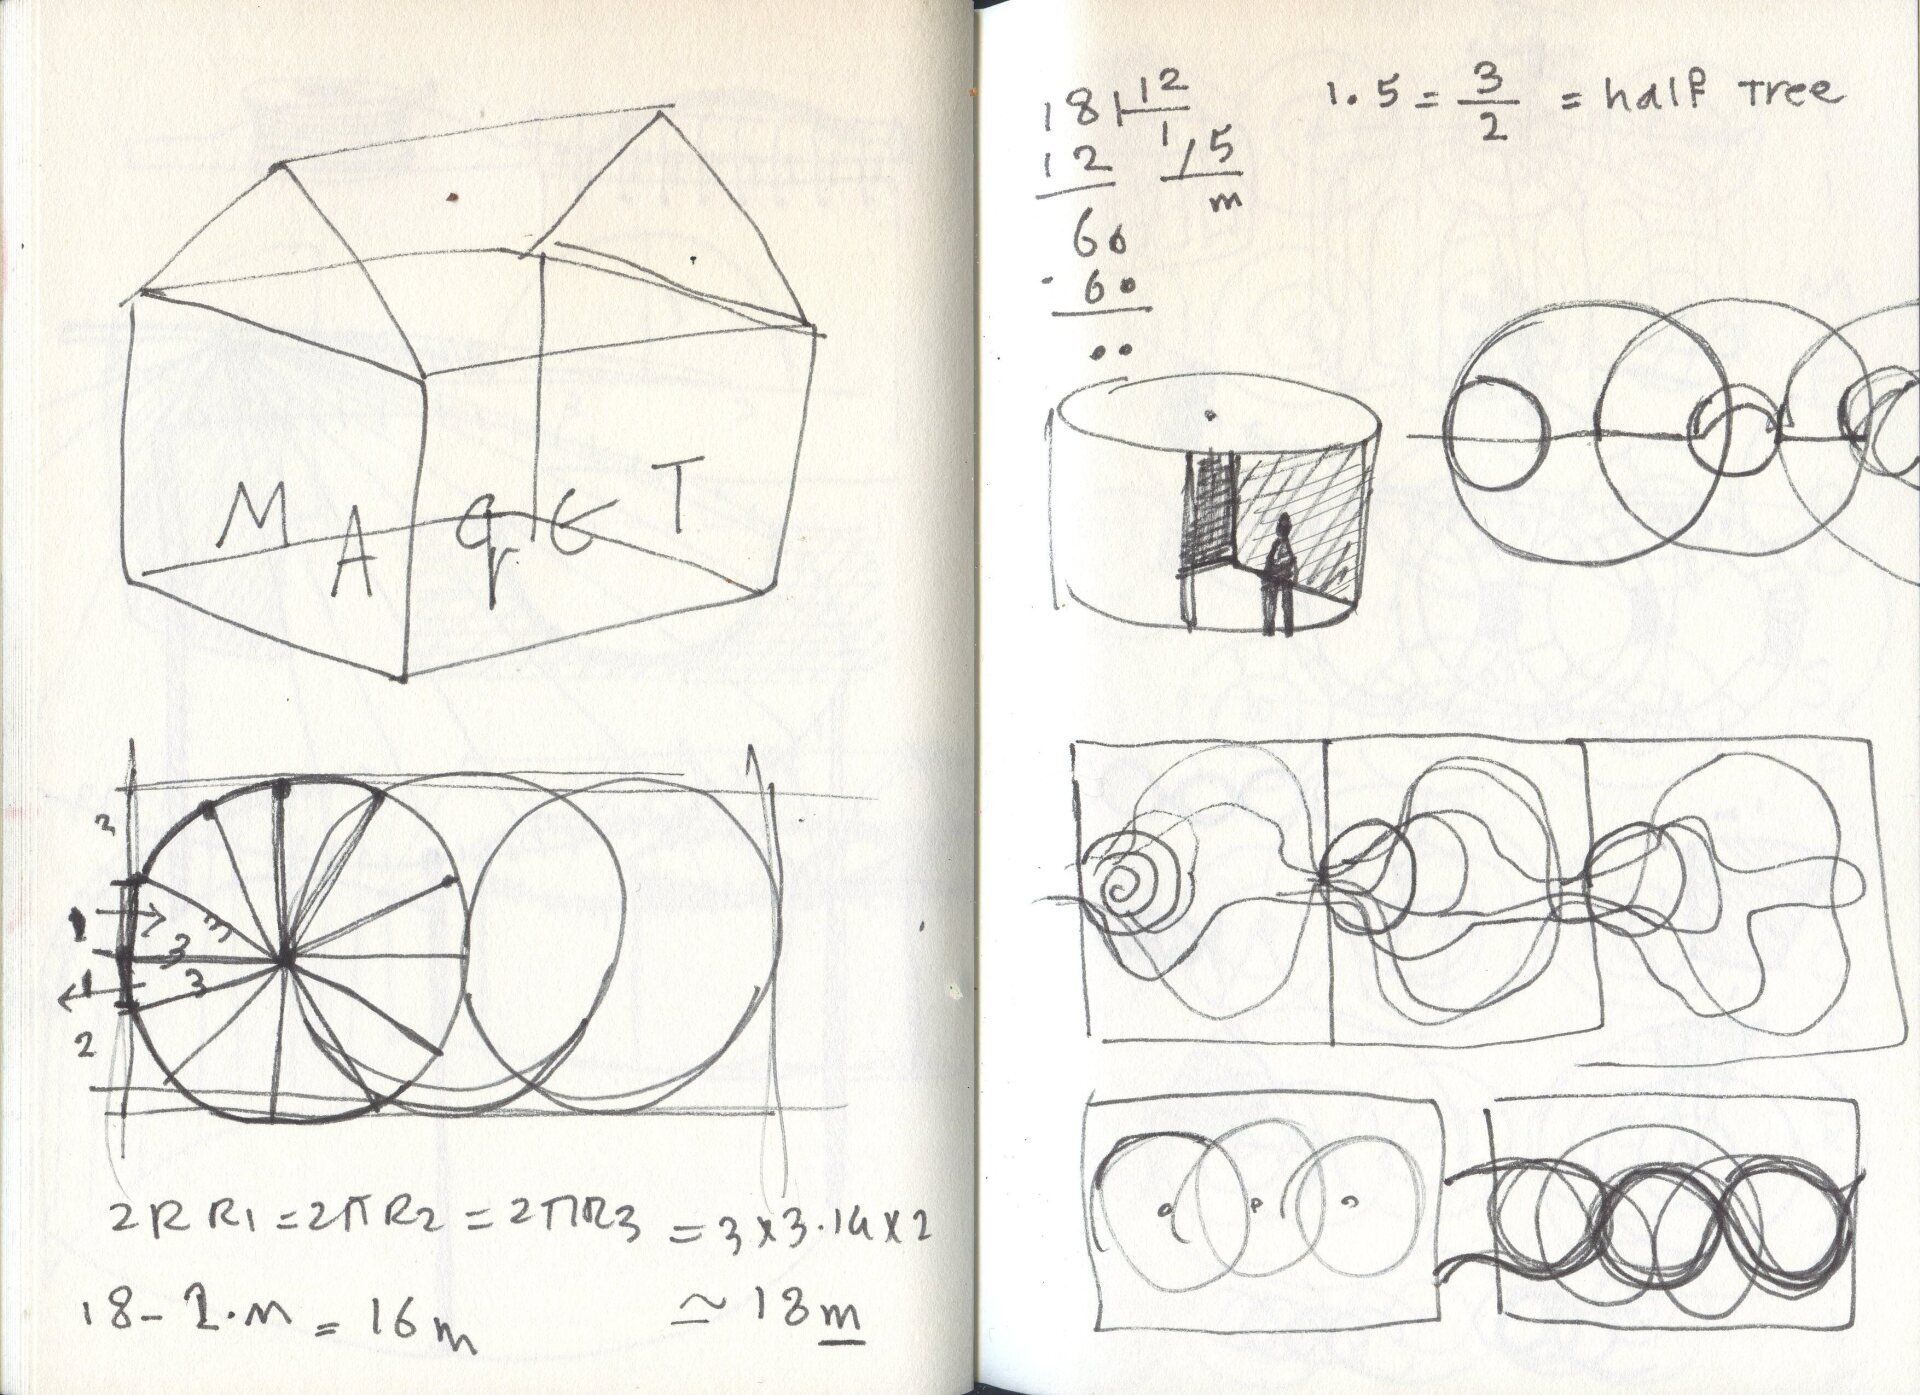 M A q E T
2
1
3
3
3
1
2
2R R1 = 2π R2 = 2ΠR3 = 3 x 3.14 x 2
18 - 2.m = 16m ≃ 18 m
18 12
12 1,5
m
60
- 60
..
1.5 = 3/2 = half Tree